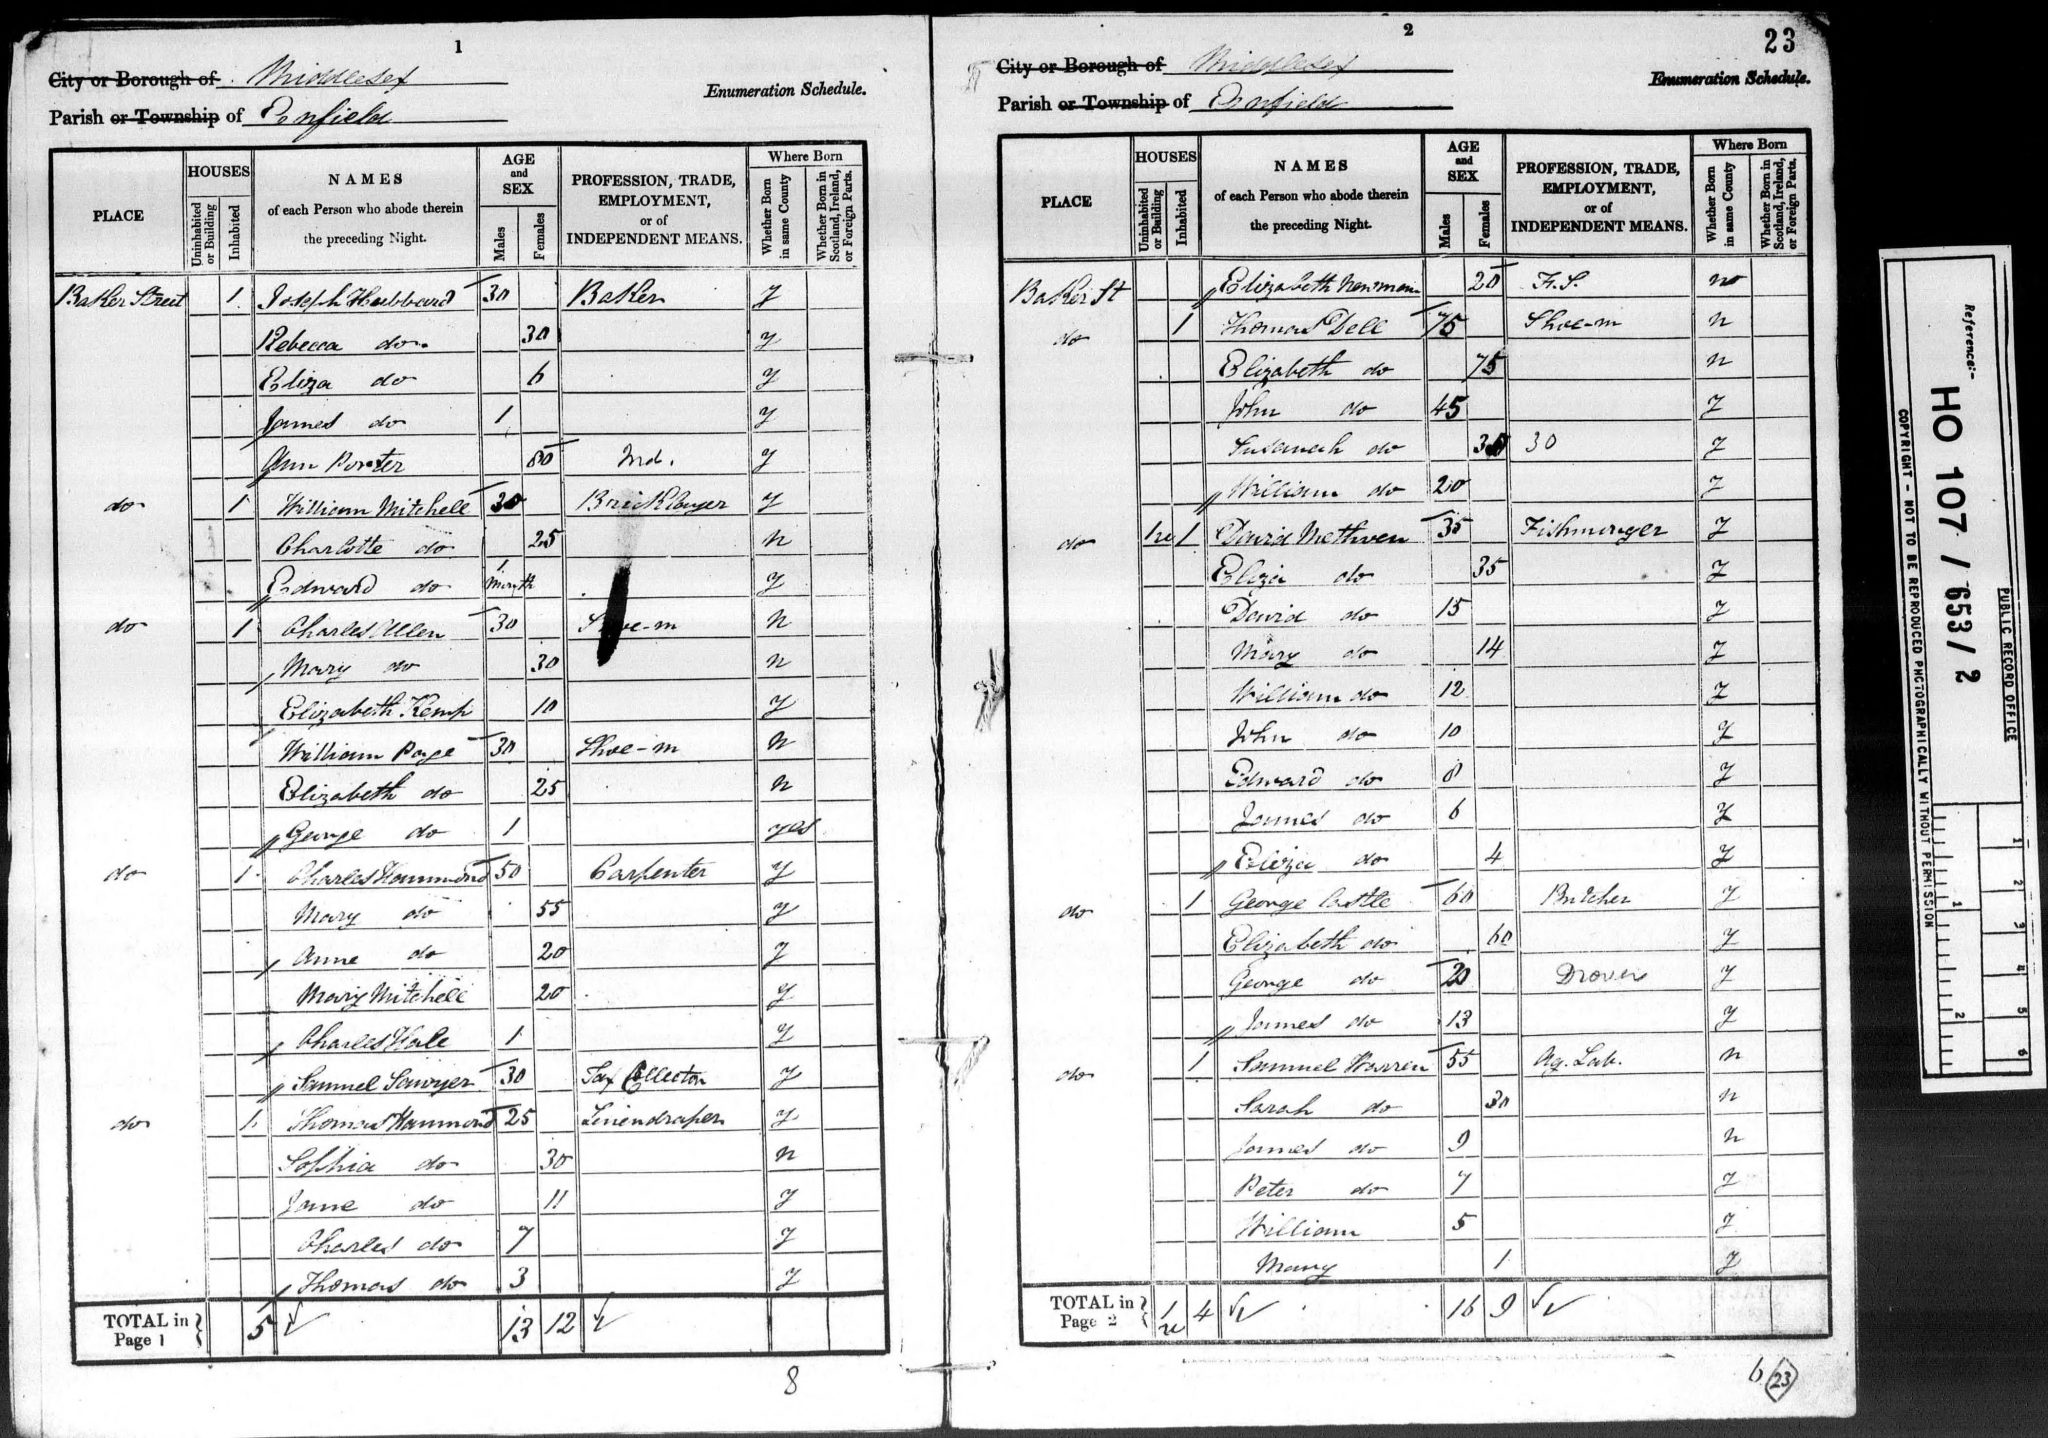 1
City or Borough of Middlesex
Enumeration Schedule.
Parish or Township of Enfield
PLACE
HOUSES
Uninhabited or Building
Inhabited
NAMES
of each Person who abode therein
the preceding Night.
AGE
and
SEX
Males
Females
PROFESSION, TRADE,
EMPLOYMENT,
or of
INDEPENDENT MEANS.
Where Born
Whether Born in same County
Whether Born in Scotland, Ireland, or Foreign Parts.
Baker Street 1 Joseph Hubbard 30 Baker y
Rebecca do 30 y
Eliza do 6 y
James do 1 y
Ann Porter 80 Ind. y
do 1 William Mitchell 30 Bricklayer y
Charlotte do 25 n
Edward do 1 Month y
do 1 Charles Allen 30 Shoe-m n
Mary do 30 n
Elizabeth Kemp 10 y
William Page 30 Shoe-m n
Elizabeth do 25 n
George do 1 yes
do 1 Charles Hammond 50 Carpenter y
Mary do 55 y
Anne do 20 y
Mary Mitchell 20 y
Charles Hale 1 y
Samuel Sawyer 30 Tax Collector y
do 1 Thomas Hammond 25 Linendraper y
Sophia do 30 n
Jane do 11 y
Charles do 7 y
Thomas do 3 y
TOTAL in Page 1 5 13 12
8
2
23
City or Borough of Middlesex
Enumeration Schedule.
Parish or Township of Enfield
PLACE
HOUSES
Uninhabited or Building
Inhabited
NAMES
of each Person who abode therein
the preceding Night.
AGE
and
SEX
Males
Females
PROFESSION, TRADE,
EMPLOYMENT,
or of
INDEPENDENT MEANS.
Where Born
Whether Born in same County
Whether Born in Scotland, Ireland, or Foreign Parts.
Baker St Elizabeth Newman 20 F.S. no
do 1 Thomas Dell 75 Shoe-m n
Elizabeth do 75 n
John do 45 y
Susannah do 30 y
William do 20 y
do 1u 1 David Methven 35 Fishmonger y
Eliza do 35 y
David do 15 y
Mary do 14 y
William do 12 y
John do 10 y
Edward do 8 y
James do 6 y
Eliza do 4 y
do 1 George Castle 60 Butcher y
Elizabeth do 60 y
George do 20 Drover y
James do 13 y
do 1 Samuel Warren 55 Ag. Lab. n
Sarah do 30 n
James do 9 n
Peter do 7 y
William 5 y
Mary 1 y
TOTAL in Page 2 1u 4 16 9
6 23
Reference:-
HO 107 / 653 / 2
PUBLIC RECORD OFFICE
COPYRIGHT - NOT TO BE REPRODUCED PHOTOGRAPHICALLY WITHOUT PERMISSION
1 2 3 4 5 6
1 2